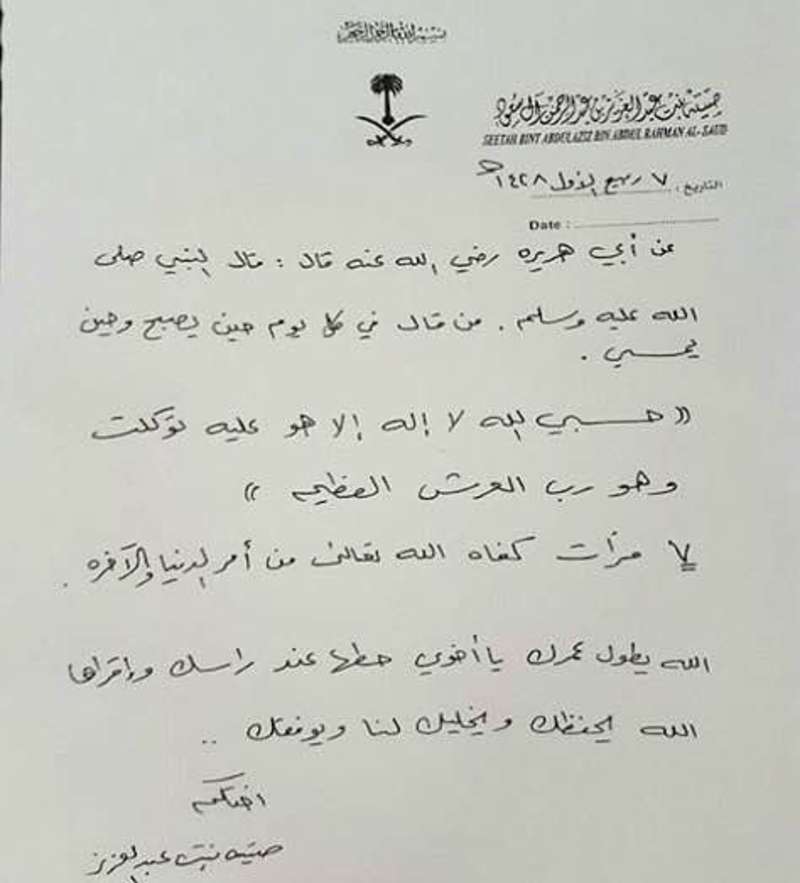 بسم الله الرحمن الرحيم
صيته بنت عبد العزيز بن عبد الرحمن آل سعود
SEETAH BINT ABDULAZIZ BIN ABDUL RAHMAN AL-SAUD
التاريخ : ٧ ربيع الاول ١٤٢٨ هـ
Date :
عن أبي هريره رضي الله عنه قال : قال النبي صلى
الله عليه وسلم . من قال في كل يوم حين يصبح وحين
يمسي .
(( حسبي الله لا إله إلا هو عليه توكلت
وهو رب العرش العظيم ))
٧ مرات كفاه الله تعالى من أمر الدنيا والآخره .
الله يطول عمرك يا أخوي حطها عند راسك وإقراها
الله يحفظك ويخليك لنا ويوفقك ..
اختكم
صيته بنت عبد العزيز